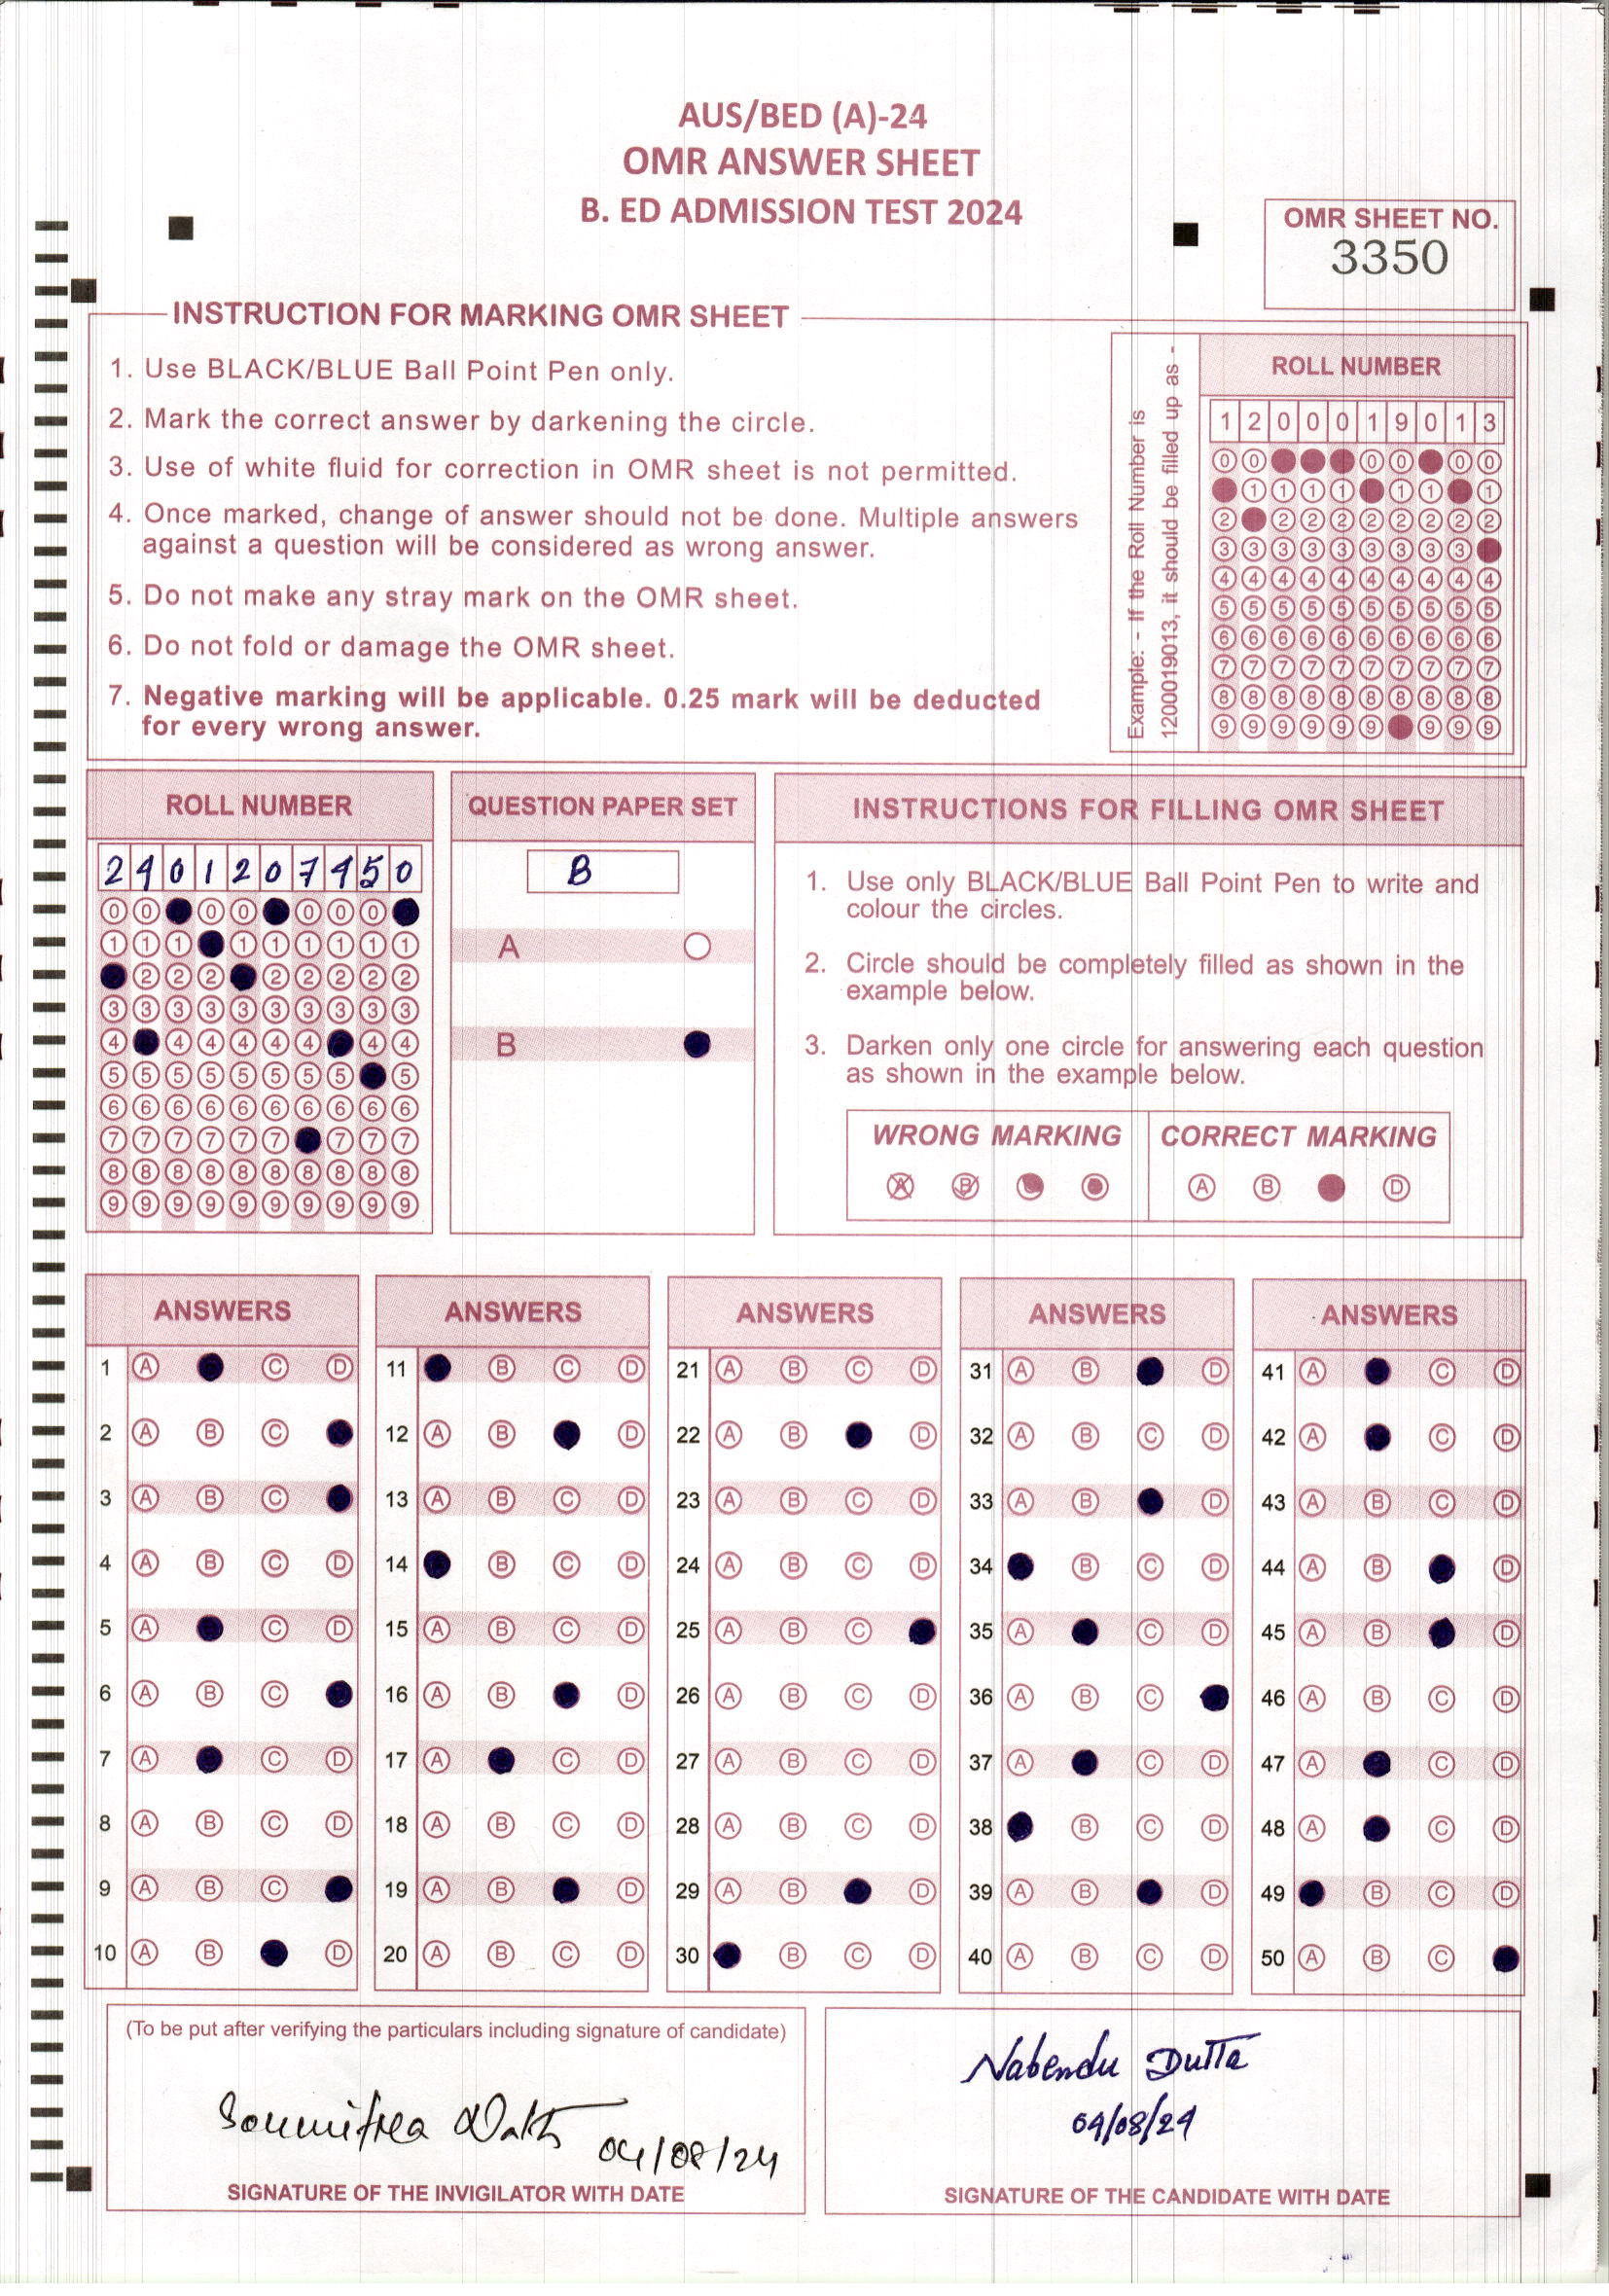 AUS/BED (A)-24
OMR ANSWER SHEET
B. ED ADMISSION TEST 2024
OMR SHEET NO.
3350
INSTRUCTION FOR MARKING OMR SHEET
1. Use BLACK/BLUE Ball Point Pen only.
2. Mark the correct answer by darkening the circle.
3. Use of white fluid for correction in OMR sheet is not permitted.
4. Once marked, change of answer should not be done. Multiple answers
against a question will be considered as wrong answer.
5. Do not make any stray mark on the OMR sheet.
6. Do not fold or damage the OMR sheet.
7. Negative marking will be applicable. 0.25 mark will be deducted
for every wrong answer.
Example: - If the Roll Number is
1200019013, it should be filled up as -
ROLL NUMBER
1 2 0 0 0 1 9 0 1 3
0 0 0 0 0 0
1 1 1 1 1 1 1
2 2 2 2 2 2 2 2 2
3 3 3 3 3 3 3 3 3
4 4 4 4 4 4 4 4 4 4
5 5 5 5 5 5 5 5 5 5
6 6 6 6 6 6 6 6 6 6
7 7 7 7 7 7 7 7 7 7
8 8 8 8 8 8 8 8 8 8
9 9 9 9 9 9 9 9 9
ROLL NUMBER
2 4 0 1 2 0 7 4 5 0
0 0 0 0 0 0 0
1 1 1 1 1 1 1 1 1
2 2 2 2 2 2 2 2
3 3 3 3 3 3 3 3 3 3
4 4 4 4 4 4 4 4
5 5 5 5 5 5 5 5 5
6 6 6 6 6 6 6 6 6 6
7 7 7 7 7 7 7 7 7
8 8 8 8 8 8 8 8 8 8
9 9 9 9 9 9 9 9 9 9
QUESTION PAPER SET
B
A
B
INSTRUCTIONS FOR FILLING OMR SHEET
1. Use only BLACK/BLUE Ball Point Pen to write and
colour the circles.
2. Circle should be completely filled as shown in the
example below.
3. Darken only one circle for answering each question
as shown in the example below.
WRONG MARKING
A B
CORRECT MARKING
A B D
ANSWERS
1 A C D
2 A B C
3 A B C
4 A B C D
5 A C D
6 A B C
7 A C D
8 A B C D
9 A B C
10 A B D
ANSWERS
11 B C D
12 A B D
13 A B C D
14 B C D
15 A B C D
16 A B D
17 A C D
18 A B C D
19 A B D
20 A B C D
ANSWERS
21 A B C D
22 A B D
23 A B C D
24 A B C D
25 A B C
26 A B C D
27 A B C D
28 A B C D
29 A B D
30 B C D
ANSWERS
31 A B D
32 A B C D
33 A B D
34 B C D
35 A C D
36 A B C
37 A C D
38 B C D
39 A B D
40 A B C D
ANSWERS
41 A C D
42 A C D
43 A B C D
44 A B D
45 A B D
46 A B C D
47 A C D
48 A C D
49 B C D
50 A B C
(To be put after verifying the particulars including signature of candidate)
04/08/24
SIGNATURE OF THE INVIGILATOR WITH DATE
Nabendu Dutta
04/08/24
SIGNATURE OF THE CANDIDATE WITH DATE